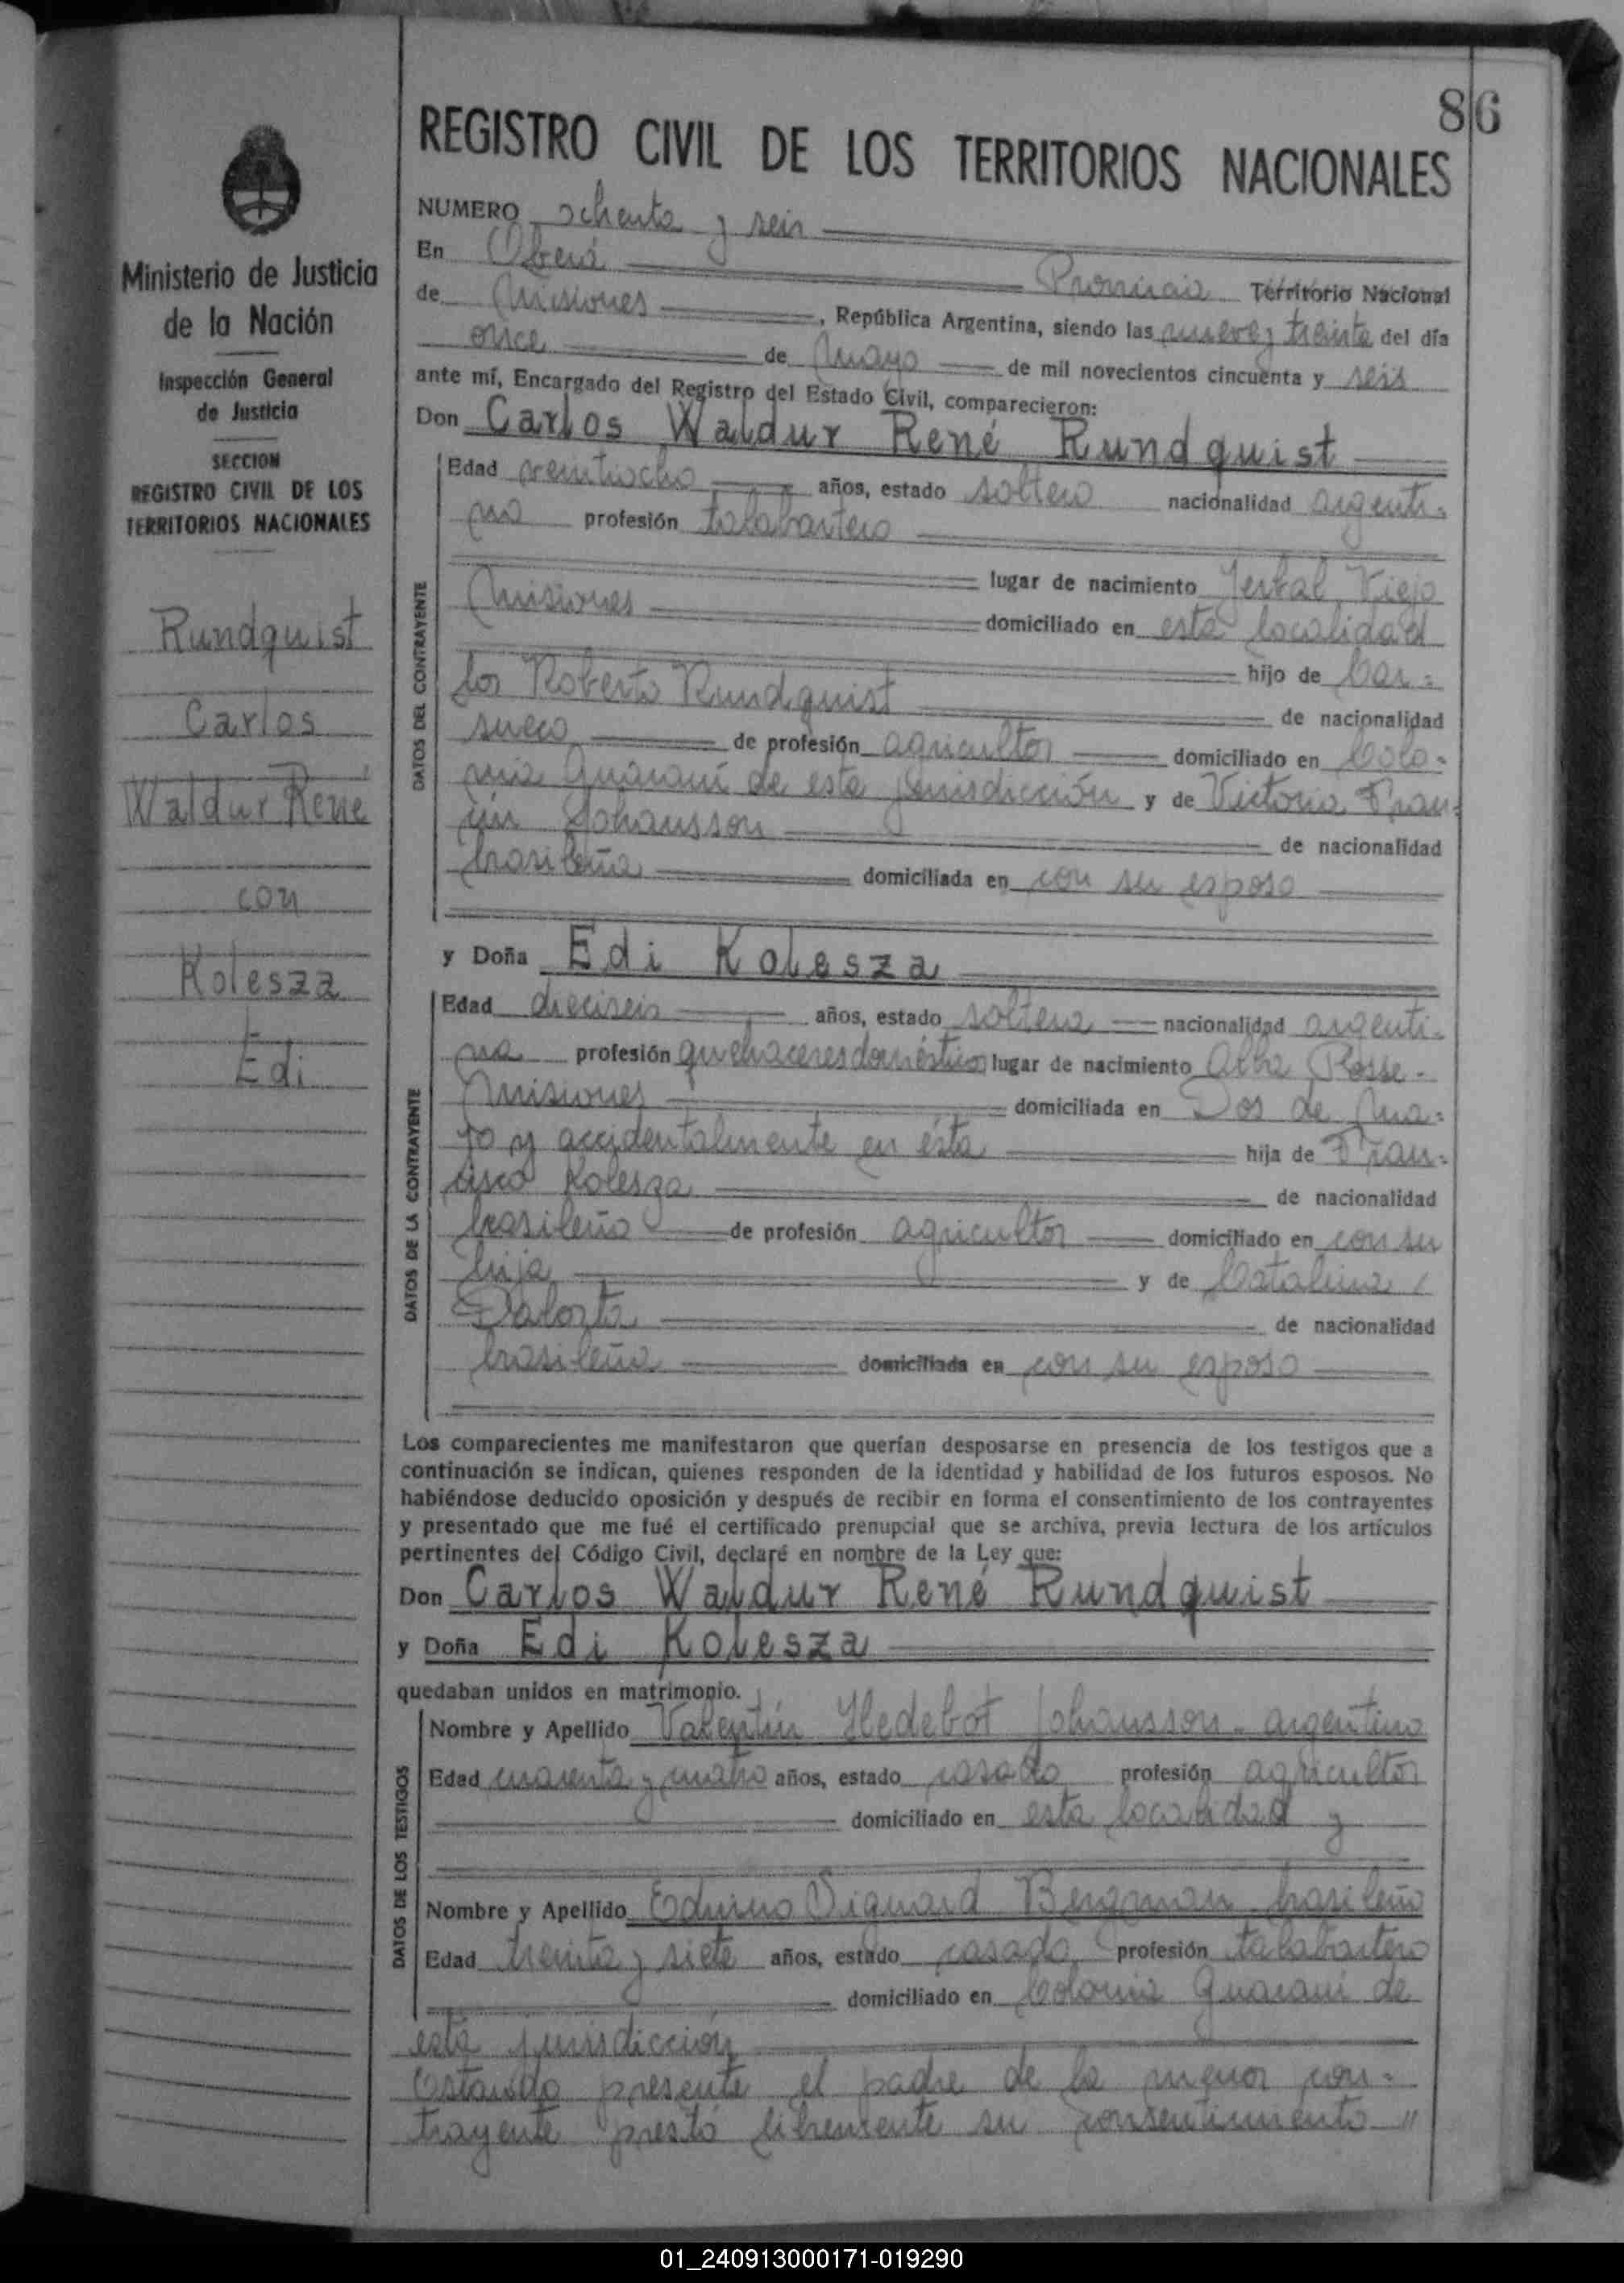 86
REGISTRO CIVIL DE LOS TERRITORIOS NACIONALES
Ministerio de Justicia
de la Nación
Inspección General
de Justicia
SECCION
REGISTRO CIVIL DE LOS
TERRITORIOS NACIONALES
Rundquist
Carlos
Waldur René
con
Kolesza
Edi
NUMERO ochenta y seis
En Oberá Provincia Territorio Nacional
de Misiones, República Argentina, siendo las nueve y treinta del día
once de Mayo de mil novecientos cincuenta y seis
ante mí, Encargado del Registro del Estado Civil, comparecieron:
Don Carlos Waldur René Rundquist
DATOS DEL CONTRAYENTE
Edad veintiocho años, estado soltero nacionalidad argenti-
no profesión talabartero
lugar de nacimiento Yerbal Viejo
Misiones domiciliado en esta localidad
hijo de Car-
los Roberto Rundquist de nacionalidad
sueco de profesión agricultor domiciliado en Colo-
nia Guaraní de esta jurisdicción y de Victoria
Johansson de nacionalidad
brasileña domiciliada en con su esposo
y Doña Edi Kolesza
DATOS DE LA CONTRAYENTE
Edad dieciseis años, estado soltera nacionalidad argenti-
na profesión quehaceres domésticos lugar de nacimiento Alba Posse-
Misiones domiciliada en Dos de Ma-
yo y accidentalmente en ésta hija de Fran-
cisco Kolesza de nacionalidad
brasileño de profesión agricultor domiciliado en con su
hija y de Catalina
de nacionalidad
brasileña domiciliada en con su esposo
Los comparecientes me manifestaron que querían desposarse en presencia de los testigos que a
continuación se indican, quienes responden de la identidad y habilidad de los futuros esposos. No
habiéndose deducido oposición y después de recibir en forma el consentimiento de los contrayentes
y presentado que me fué el certificado prenupcial que se archiva, previa lectura de los artículos
pertinentes del Código Civil, declaré en nombre de la Ley que:
Don Carlos Waldur René Rundquist
y Doña Edi Kolesza
quedaban unidos en matrimonio.
DATOS DE LOS TESTIGOS
Nombre y Apellido Valentín Hedebot Johansson - argentino
Edad cuarenta y cuatro años, estado casado profesión agricultor
domiciliado en esta localidad y
Nombre y Apellido Eduino Siguard Bergman brasileño
Edad treinta y siete años, estado casado profesión talabartero
domiciliado en Colonia Guaraní de
esta jurisdicción
Estando presente el padre de la menor con-
trayente prestó libremente su consentimiento "
01_240913000171-019290